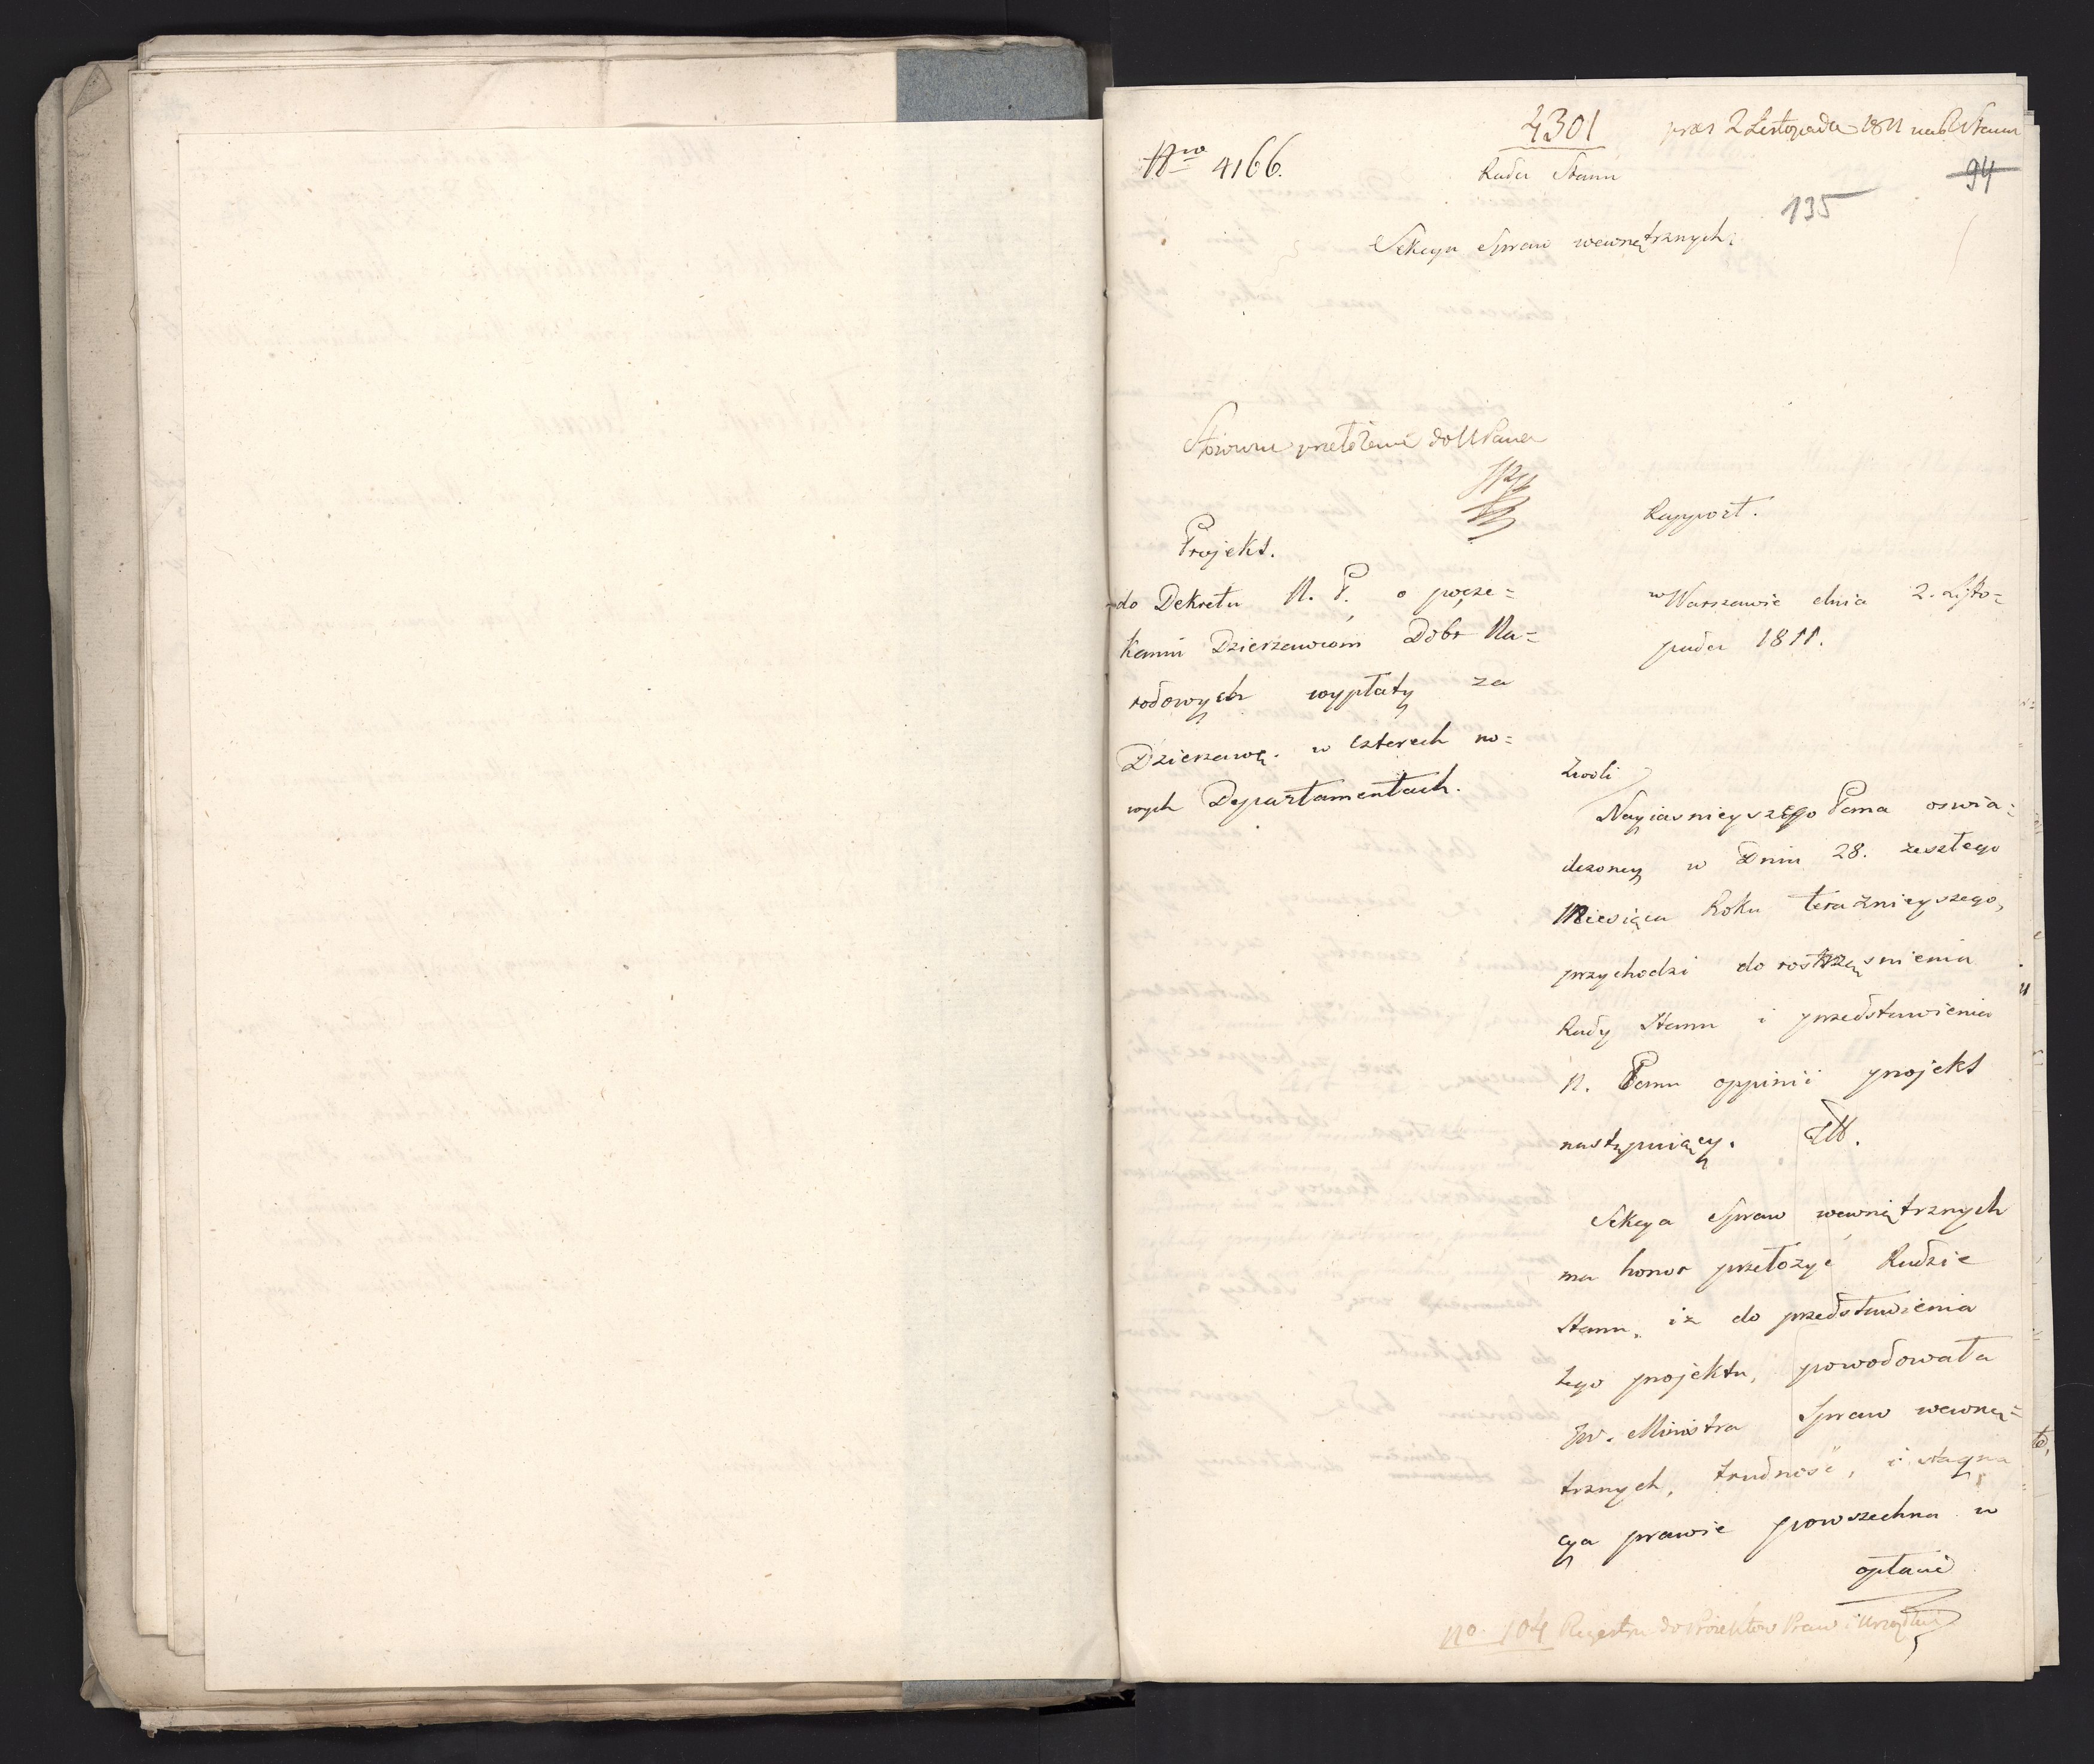 4301
prez 2 Listopada 1811 na R Stanu
Nro 4166.
Rada Stanu
94
135
Sekcya Spraw wewnętrznych.
przełożenie do
Projekt.
do Dekretu N. P. o pocze=
kaniu Dzierzawcom Dobr Na=
rodowych wypłaty za
Dzierzawę w czterech no=
wych Departamentach.
Rapport.
w Warszawie dnia 2. Listo=
pada 1811.
Z woli
Nayiasnieyszego Pana oswia=
dczoney w Dniu 28. zeszłego
Miesiąca Roku teraznieyszego,
przychodzi do rostrząsnienia
Rady Stanu i przedstawienia
N. Panu oppinii projekt
następuiący.
Sekcya Spraw wewnętrznych
ma honor przełożyć Radzie
Stanu, iż do przedstawienia
tego projektu, powodowała
JW. Ministra Spraw wewnę=
trznych, trudność, i stagna
cya prawie powszechna w
opłacie
No. 104 Regestru do Proiektow Praw i Urządzeń